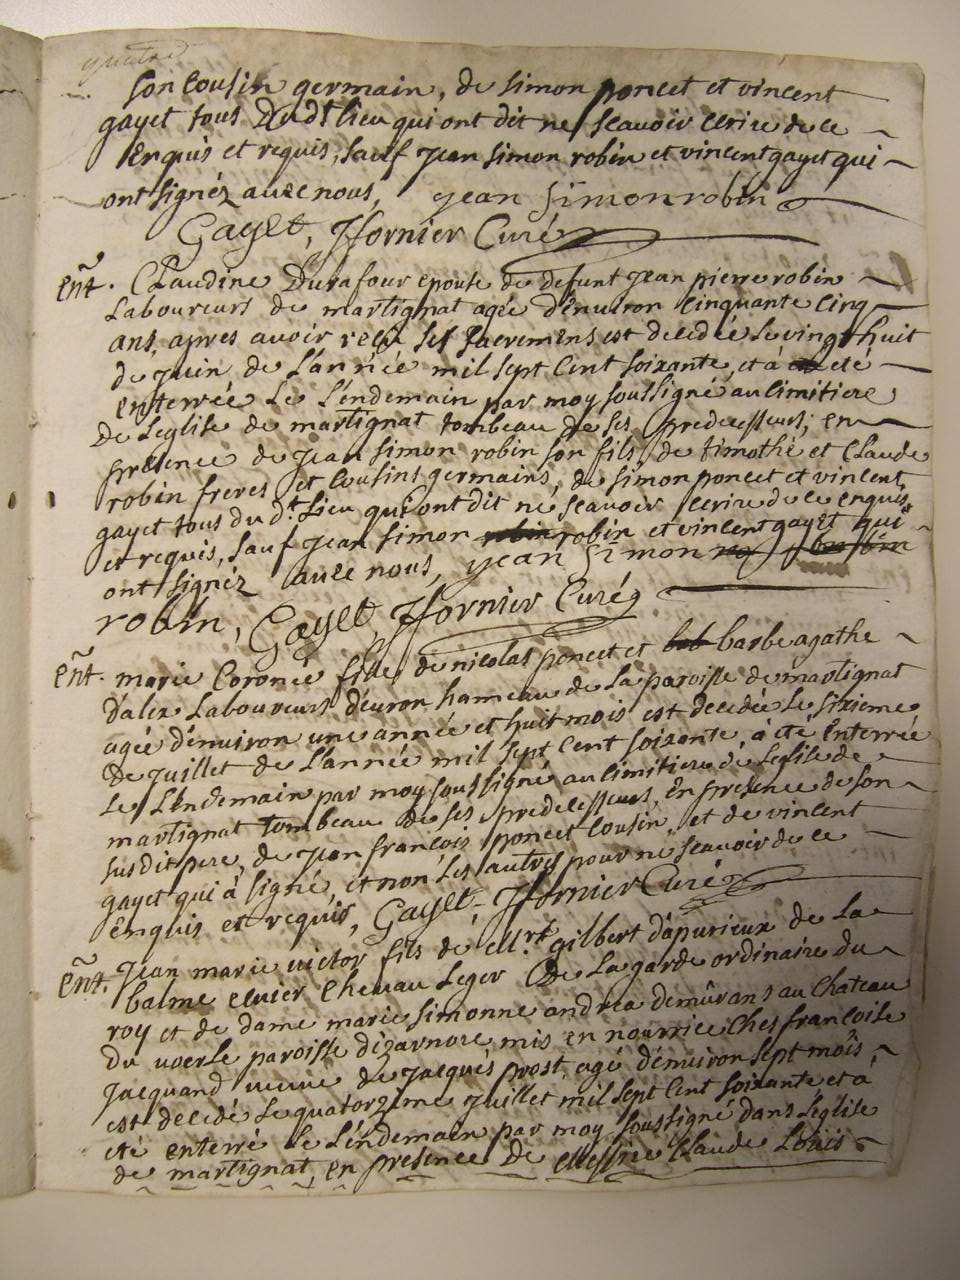 son cousin germain, de simon poncet et vincent
gayet tous du dt lieu qui ont dit ne scavoir ecrire de ce
enquis et requis, sauf jean simon robin et vincent gayet qui
ont signéz avec nous, jean simon robin
Gayet, ffornier Curé
ent. Claudine Durafour epouse de defunt jean pierre robin
Laboureurs de martignat agée d'environ cinquante cinq
ans, apres avoir reçu ses sacremens est decedée le vingt huit
de juin de l'année mil sept cent soixante, et à eté
enterrée le l'endemain par moy soussigné au cimitiere
de L'eglise de martignat tombeau de ses predecesseurs, en
presence de jean simon robin son fils, de timothé et Claude
robin freres et cousins germains, de simon poncet et vincent
gayet tous du dt. Lieu qui ont dit ne scavoir ecrire de ce enquis
et requis, sauf jean simon robin robin et vincent gayet qui
ont signéz avec nous, jean simon
robin, Gayet, ffornier Curé
ent. marie Coronée fille de nicolas poncet et barbe agathe
d'alex Laboureurs d'evron hameau de la paroisse de martignat
agée d'environ une année et huit mois est decedée le sixieme
de juillet de l'année mil sept cent soixante, à eté enterrée
le l'endemain par moy soussigné au cimitiere de L'eglise de
martignat tombeau de ses predecesseurs, en presence de son
susdit pere, de jean françois poncet cousin, et de vincent
gayet qui à signé, et non les autres pour ne scavoir de ce
enquis et requis, Gayet, ffornier Curé
ent. Jean marie victor fils de gilbert d'apurieux de La
balme ecuier chevau Leger de La garde ordinaire du
roy et de dame marie simonne andréa demûrans au Chateau
du voerle paroisse dizarnore, mis en nourrice ches françoise
Jacquand veuve de jacques prost, agé d'environ sept mois,
est decedé le quatorzime juillet mil sept cent soixante et à
eté enterré le l'endemain par moy soussigné dans L'eglise
de martignat, en presence de messire Claude Loüis